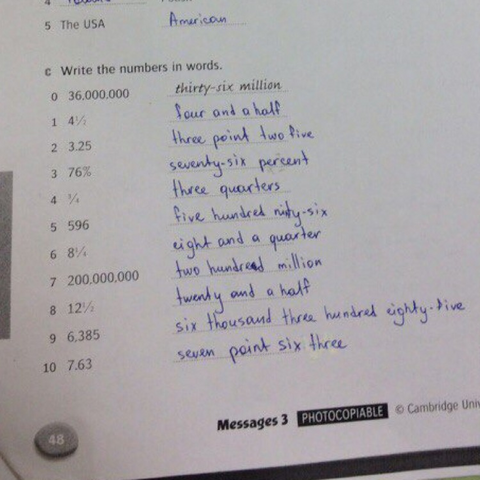 4
5 The USA American
c Write the numbers in words.
0 36,000,000 thirty-six million
1 4½ four and a half
2 3.25 three point two five
3 76% seventy-six percent
4 ¾ three quarters
5 596 five hundred ninty-six
6 8¼ eight and a quarter
7 200,000,000 two hundred million
8 12½ twenty and a half
9 6,385 six thousand three hundred eighty-five
10 7.63 seven point six three
Messages 3 PHOTOCOPIABLE © Cambridge Univ
48